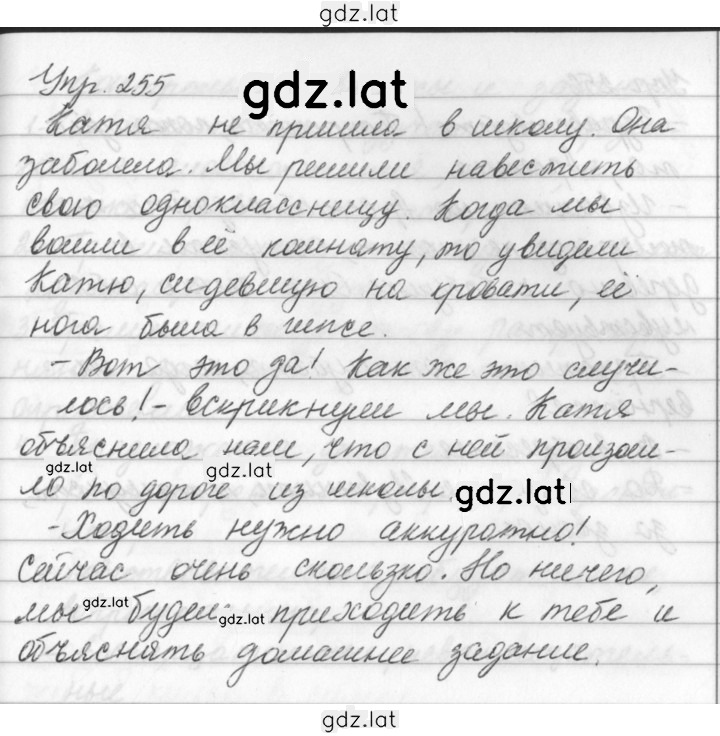 gdz.lat
Упр. 255
gdz.lat
Катя не пришла в школу. Она
заболела. Мы решили навестить
свою одноклассницу. Когда мы
вошли в её комнату, то увидели
Катю, сидевшую на кровати, её
нога была в гипсе.
- Вот это да! Как же это случи-
лось! - вскрикнули мы. Катя
объяснила нам, что с ней произош-
gdz.lat gdz.lat
ло по дороге из школы
gdz.lat
- Ходить нужно аккуратно!
Сейчас очень скользко. Но ничего,
gdz.lat gdz.lat
мы будем приходить к тебе и
объяснять домашнее задание.
gdz.lat